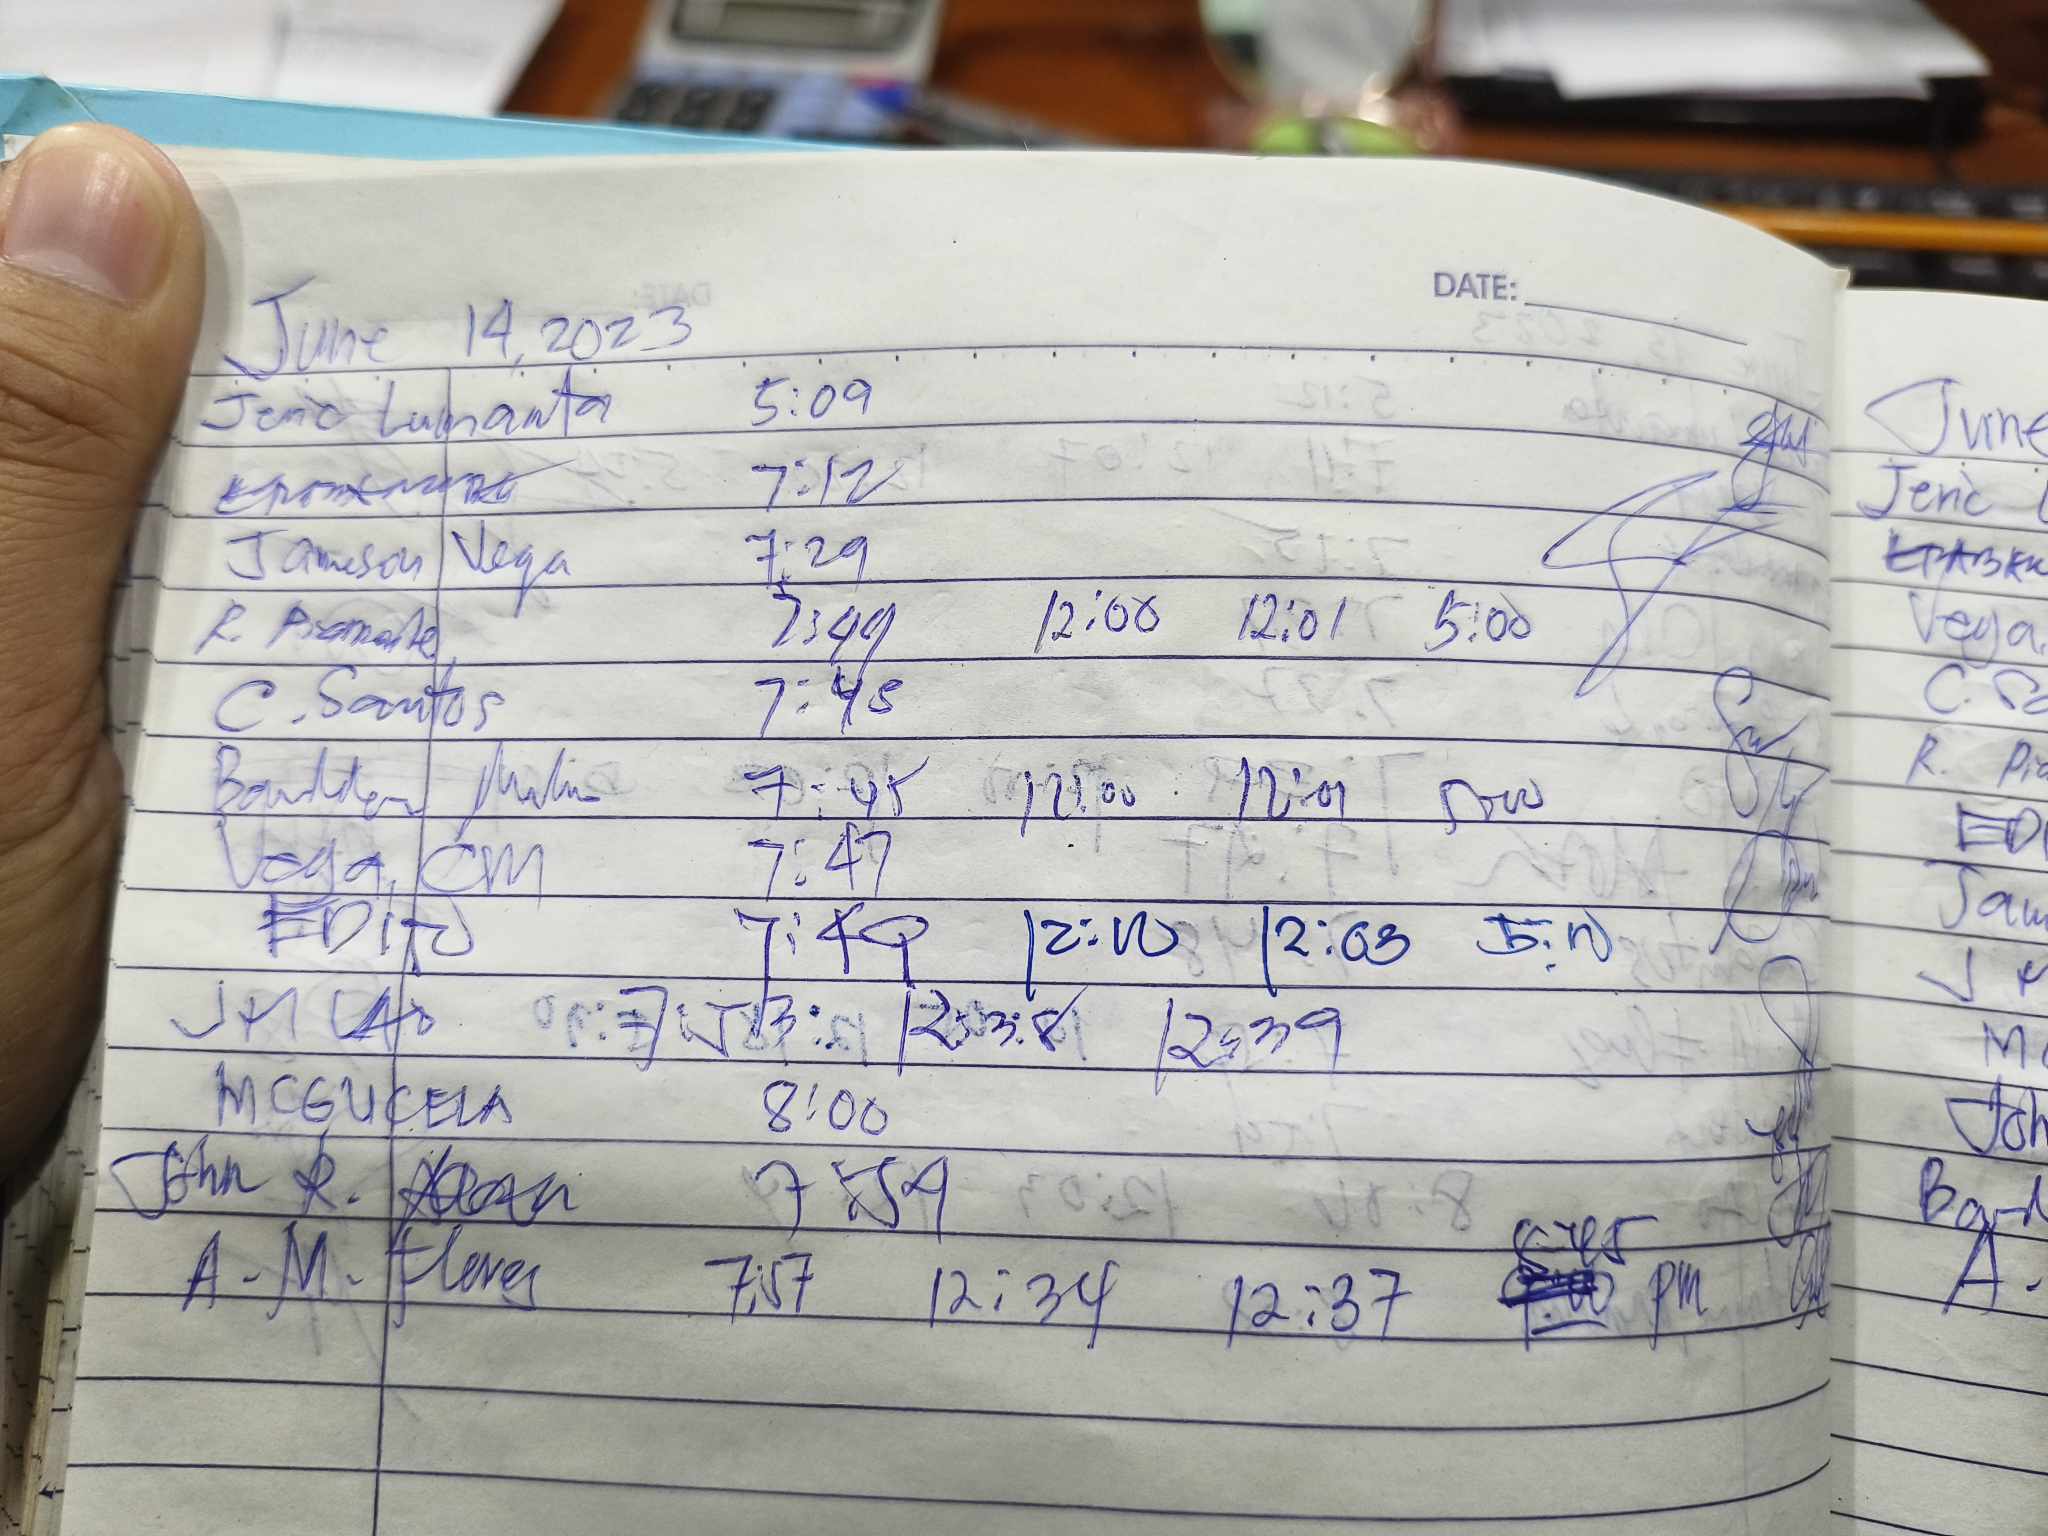 DATE:
June 14, 2023
Jeric Lumanta 5:09
7:12
Jameson Vega 7:29
R. Piamonte 7:49 12:00 12:01 5:00
C. Santos 7:45
7:45 12:00 12:01 5:00
Vega, CM 7:47
EDITO 7:49 12:10 12:03 5:10
J M 7:53 12:38 12:39
MCGUCELA 8:00
John R. 7:59
A. M. Flores 7:57 12:34 12:37 5:45 pm
June
Jeric L
Vega,
C. Sa
R. Pia
EDI
Jam
J M
MC
Joh
Ba
A.